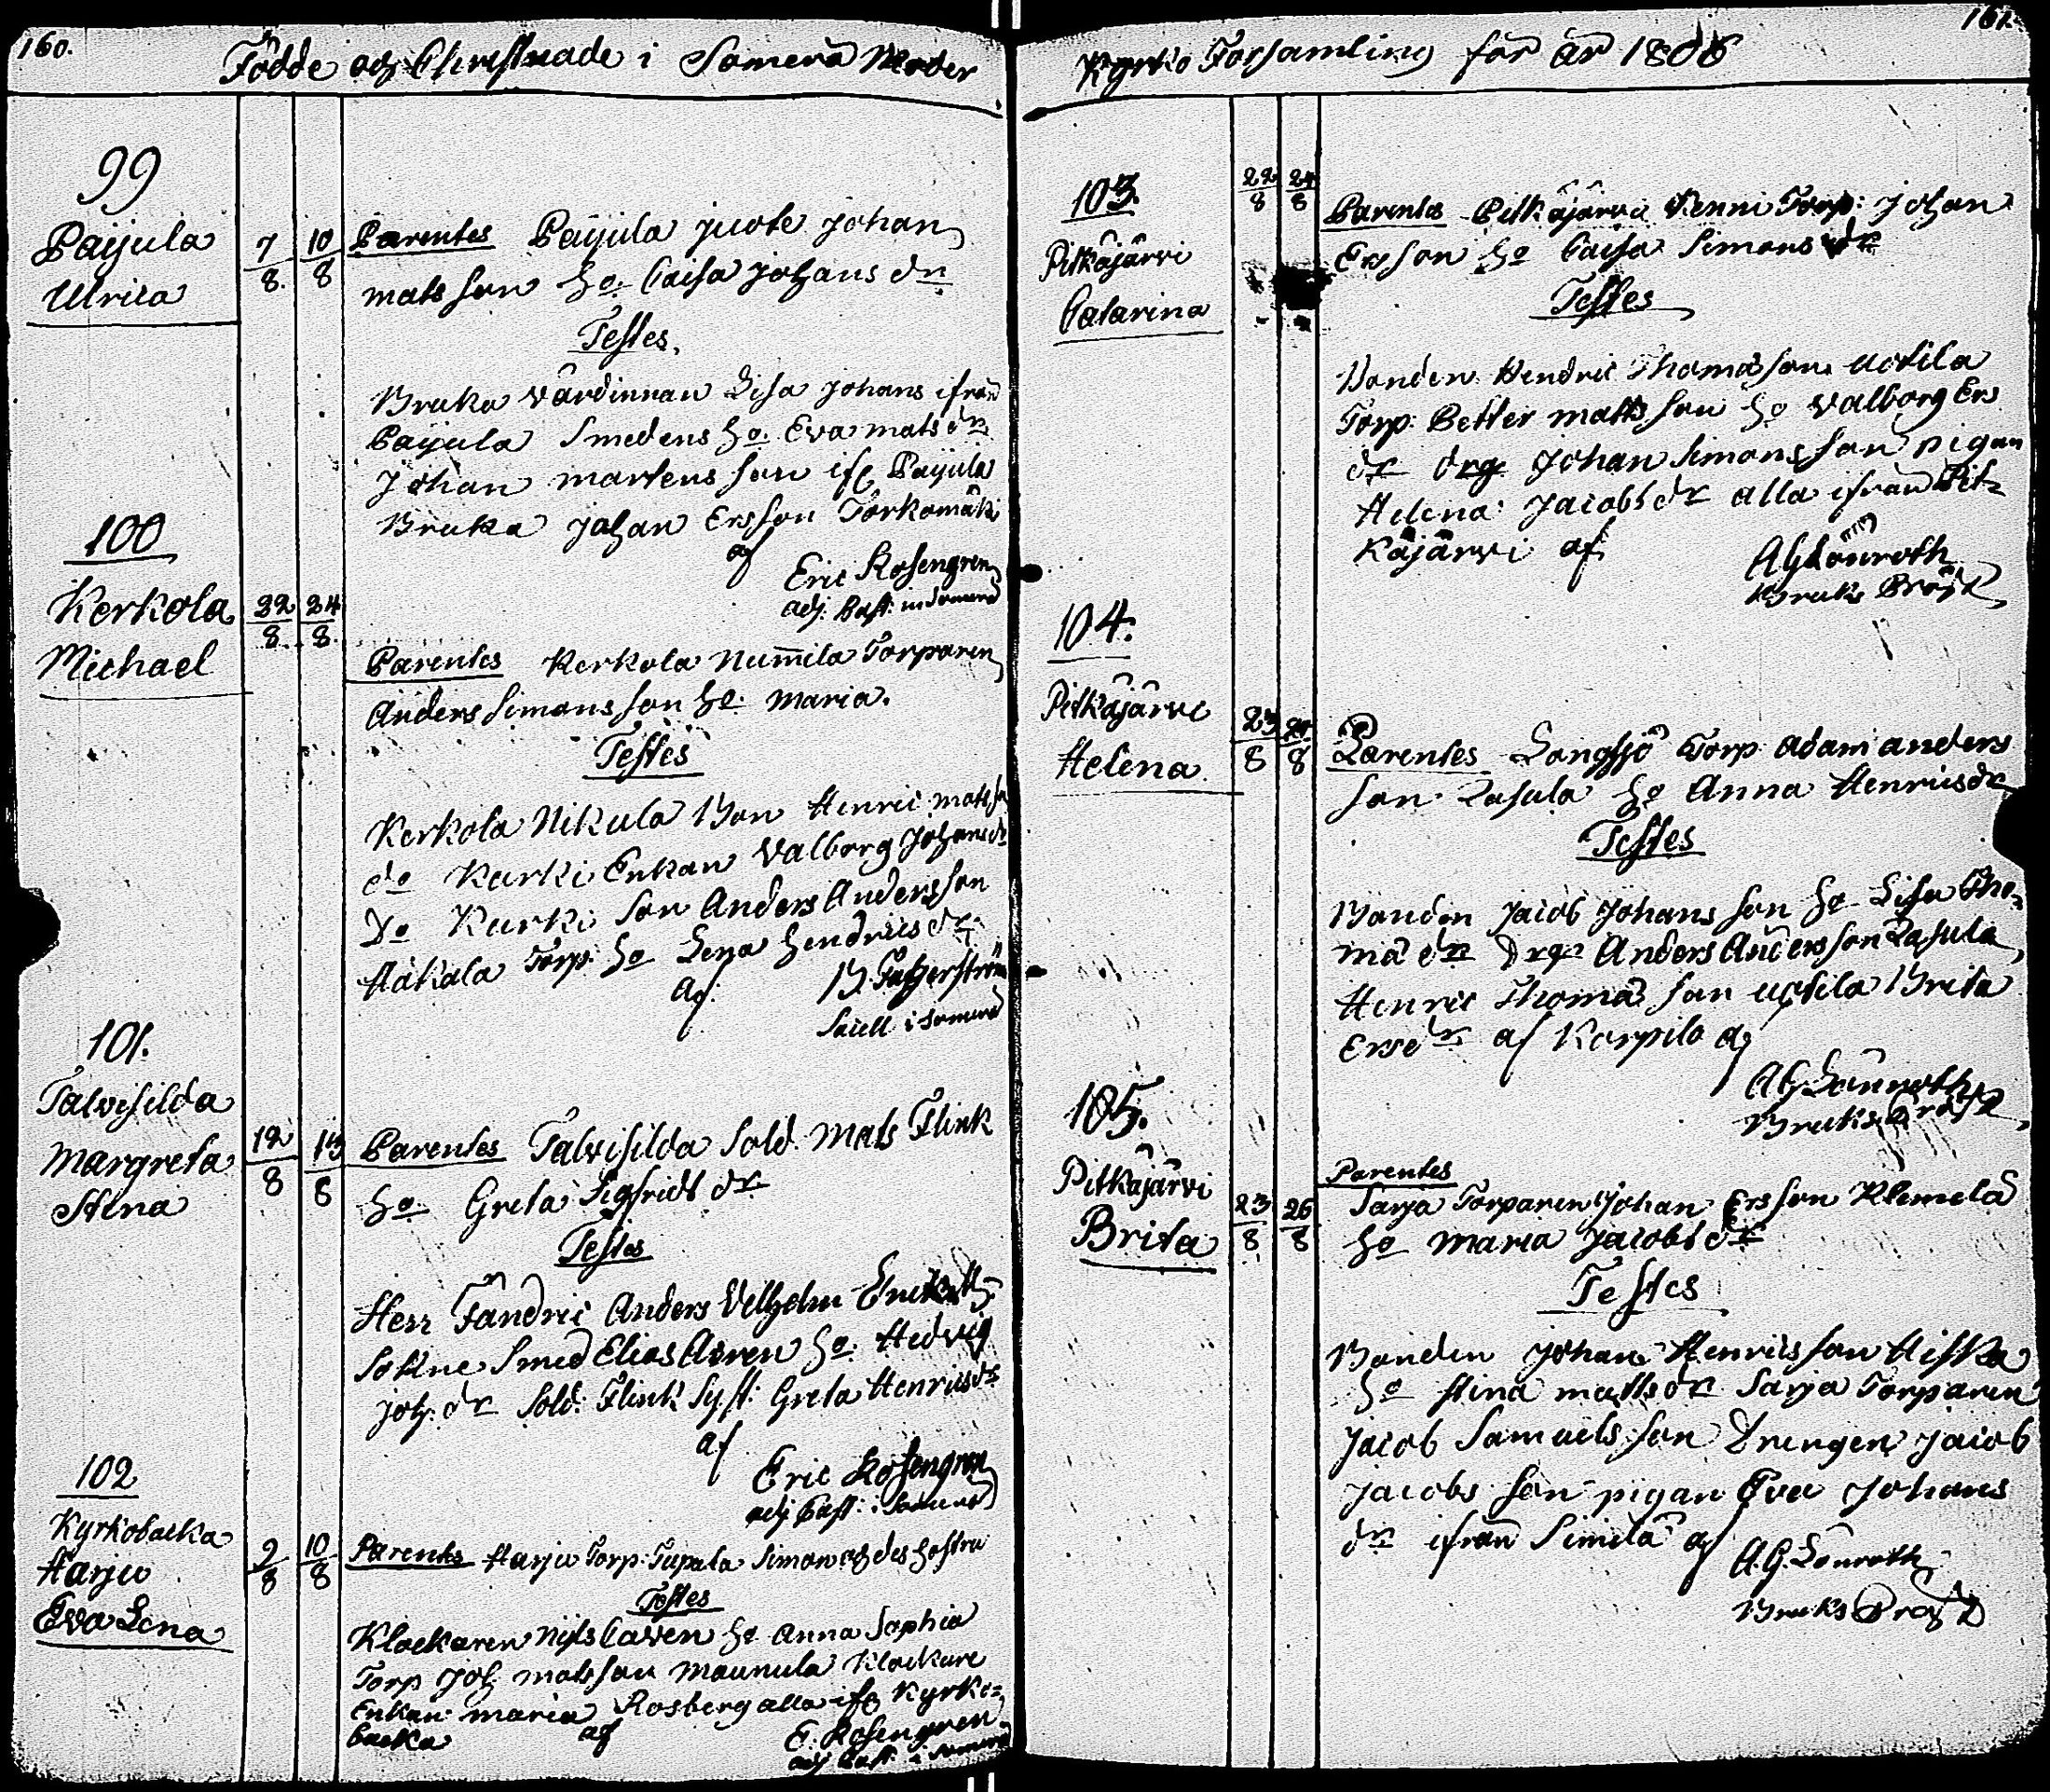 160.
Födde och Christnade i Somero Moder
99
Paijula
Ulrica
7/8. 10/8
Parentes Paijula juote Johan
mats son ho. Caisa Johans dr
Testes.
Bruka värdinnan Lisa Johans ifrån
Paijula Smedens ho. Eva mats dr
Johan martens son ifr Paijula
Bruka Johan Ersson Torkomäki
af
Eric Rosengren
adj. Past. in Somero
100
Kerkola
Michael
22/8. 24/8.
Parentes Kerkola Nummila Torparen
Anders Simons son ho. Maria.
Testes
Kerkola Nikula Bon Henric mats so
do Kurki Enkan Valborg Johans dr
Do Kurki Son Anders Anders son
Håkala Torp. ho Lena Hendrics dr
af. B.
i Somero
101.
Talvisilda
Margreta
Stina
12/8 13/8
Parentes Talvisilda Sold. Mats Flink
ho. Greta Sigfrids dr
Testes
Herr Fändric Anders Vilhelm
Smed Elias ho. Hedvig
Joh. dr Sold. Flink Greta Henrics dr
af
Eric Rosengren
adj Past. i Somero
102
Kyrkobacka
Harju
Eva Lena
9/8 10/8
Parentes Harju Torp. Tupala Simon och des hustru
Testes
Klockaren Nils Caven ho Anna Sophia
Torp Joh matsson Maunula Klockare
Enkan maria Rosberg alla ifr Kyrko=
backa af E. Rosengren
adj Past. i Somero
161.
Kyrko Församling för år 1806
103.
Pitkäjärvi
Catarina
22/8 24/8
Parentes Pitkäjärvi Renni Torp: Johan
Ersson ho Caisa Simons dr
Testes
Bonden Hendric Thomas son Uotila
Torp: Petter matts son ho Valborg Ers
dr drg Johan Simons son pigan
Helena Jacobs dr alla ifrån Pit=
käjärvi af A G Lönroth
Bruks Pred
104.
Pitkäjärvi
Helena
23/8 24/8
Parentes Långsjö Torp Adam anders
son Lasula ho Anna Henrics dr
Testes
Bonden Jacob Johans son ho Lisa Tho=
mä dr Drg Anders Anders son Lasula
Henric Thomä son Uotila Brita
Ers dr af Korpilo af
A G Lönnroth
Bruks Pred
105.
Pitkäjärvi
Brita
23/8 26/8
Parentes
Sarja Torparen Johan Ersson Klemelä
ho Maria Jacobs dr
Testes
Bonden Johan Henrics son Hiska
ho Stina matts dr Sarja Torparen
Jacob Samuels son Drengen Jacob
Jacobs son pigan Eva Johans
dr ifrån Similä af A.G. Lönroth
Bruks Pred